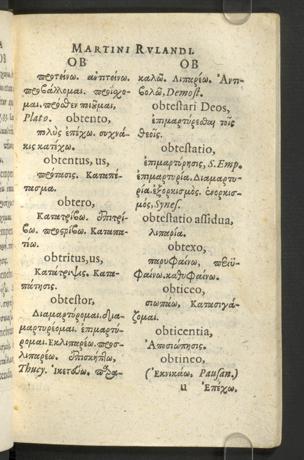 MARTINI RVLANDI.
OB
προτείνω. ἀντιτείνω.
προβάλλομαι. προΐσχομαι.
Plato. obtento,
πολὺς ἐπέχω. συχνάκις
κατέχω.
obtentus, us,
πρότασις. Καταπέτασμα.
obtero,
Κατατρίβω. ἐπιτρίβω.
προστρίβω. Καταπατέω.
obtritus, us,
Κατάτριψις. Καταπάτησις.
obtestor,
Διαμαρτύρομαι. διαμαρτυρέομαι.
ἐπιμαρτύρομαι.
Ἐκλιπαρέω. προσλιπαρέω.
ἐπισκήπτω,
Thucy. Ἱκετεύω.
OB
καλῶ. Λιπαρέω. Ἀντιβολῶ,
Demost.
obtestari Deos,
ἐπιμαρτύρεσθαι τοὺς
θεούς.
obtestatio,
ἐπιμαρτύρησις, S. Emp.
ἐπιμαρτυρία. Διαμαρτυρία.
ἐξορκισμός. ἐφορκισμός,
Synes.
obtestatio assidua,
λιπαρία.
obtexo,
παρυφαίνω,
καθυφαίνω.
obticeo,
σιωπάω, Κατασιγάζομαι.
obticentia,
Ἀποσιώπησις.
obtineo,
(Ἐκνικάω. Pausan.)
u Ἐπέχω.